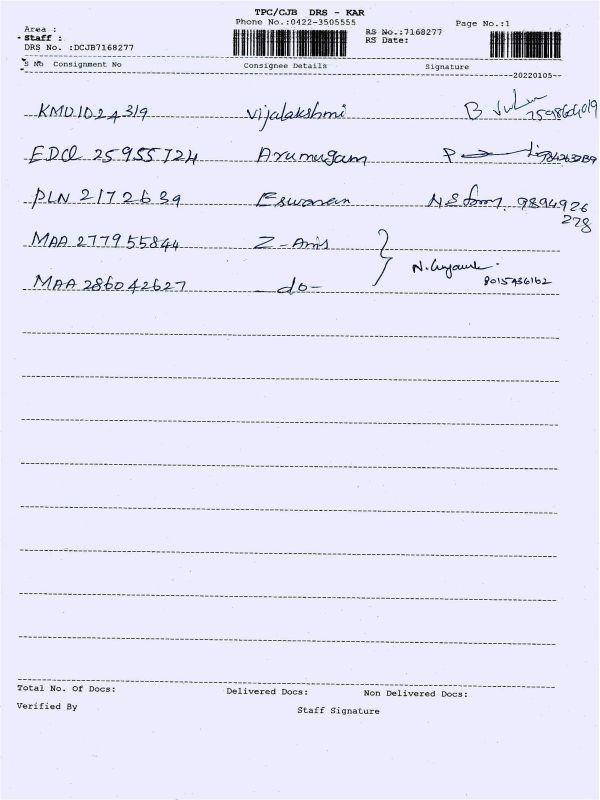 TPC/CJB DRS - KAR
Phone No.:0422-3505555 Page No.:1
Area :
Staff : RS No.:7168277
DRS No. :DCJB7168277 RS Date:
S No Consignment No Consignee Details Signature
20220105
KMD1024319 Vijalakshmi B
EDQ 25955724 Arumugam P
PLN 2172639 Eswaran N.S 9894926
278
MAA 277955844 Z-Anis
N. 8015436162
MAA 286042627 -do-
Total No. Of Docs: Delivered Docs: Non Delivered Docs:
Verified By Staff Signature